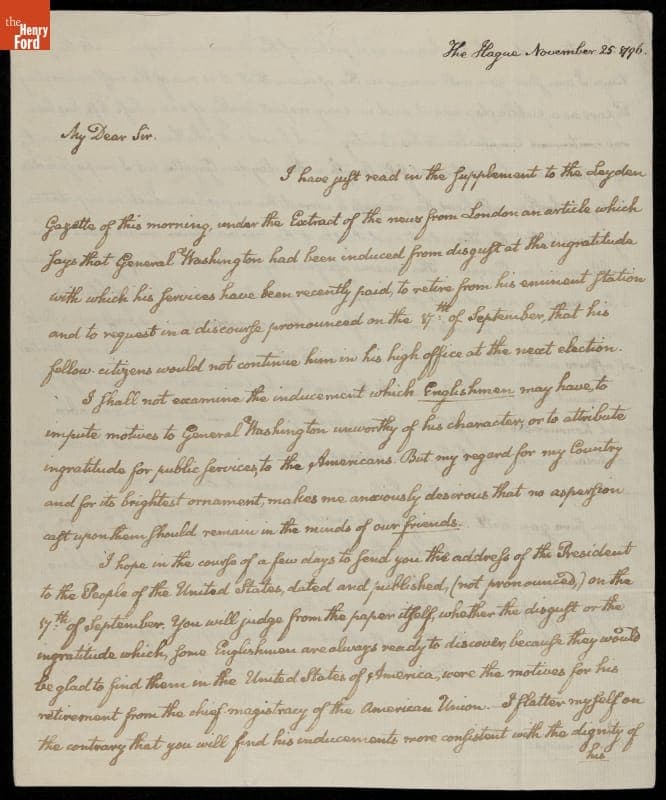 the
Henry
Ford
The Hague November 25. 1796.
My Dear Sir.
I have just read in the supplement to the Leyden
Gazette of this morning, under the Extract of the news from London an article which
says that General Washington had been induced from disgust at the ingratitude
with which his services have been recently paid, to retire from his eminent station
and to request in a discourse pronounced on the 17th of September, that his
fellow citizens would not continue him in his high office at the next election.
I shall not examine the inducement which Englishmen may have, to
impute motives to General Washington unworthy of his character, or to attribute
ingratitude for public services, to the Americans. But my regard for my Country
and for its brightest ornament, makes me anxiously desirous that no aspersion
cast upon them should remain in the minds of our friends.
I hope in the course of a few days to send you the address of the President
to the People of the United States, dated and published, (not pronounced,) on the
17th of September. You will judge from the paper itself, whether the disgust or the
ingratitude which, some Englishmen are always ready to discover, because they would
be glad to find them in the United States of America, were the motives for his
retirement from the chief magistracy of the American Union. I flatter myself on
the contrary that you will find his inducements more consistent with the dignity of
his